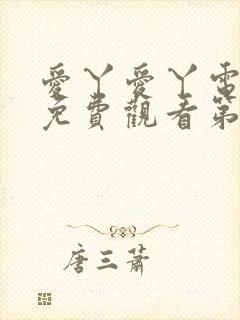 愛丫愛丫電
免費觀看第
唐三蕭